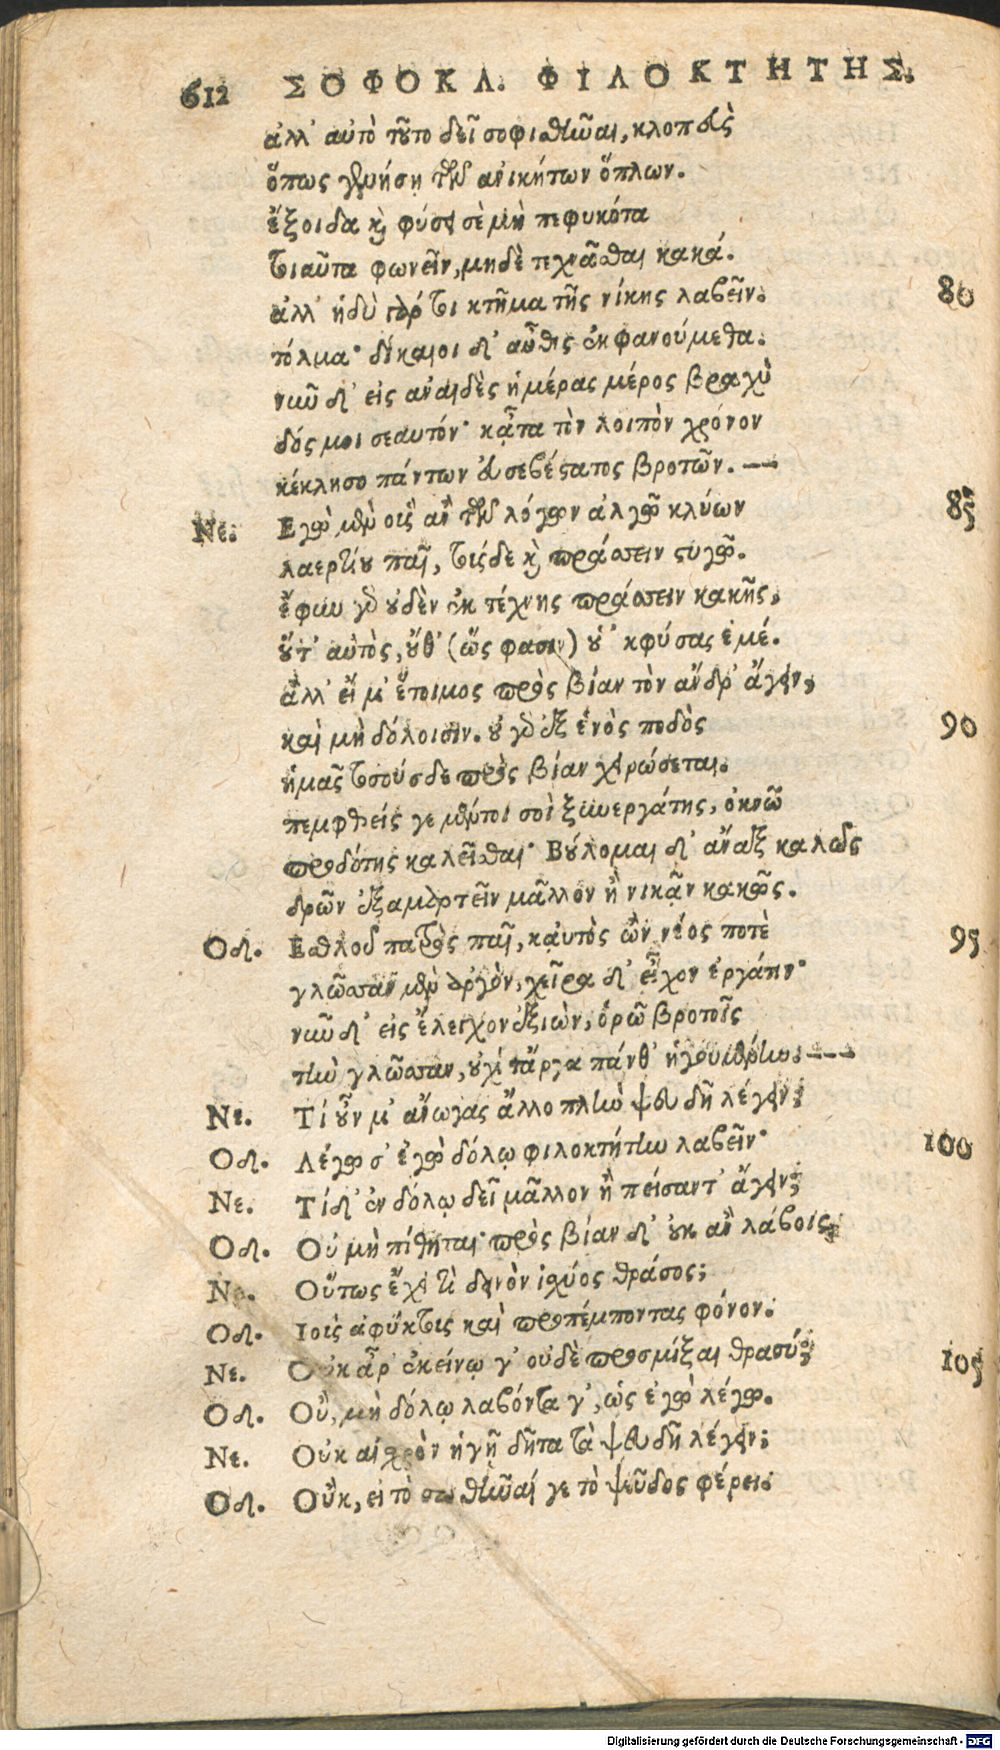 612 ΣΟΦΟΚΛ. ΦΙΛΟΚΤΗΤΗΣ.
ἀλλ' αὐτὸ τοῦτο δεῖ σοφισθῶαι, κλοπεὺς
ὅπως γενήσῃ τῶν ἀνικήτων ὅπλων.
ἔξοιδα καὶ φύσει σὲ μὴ πεφυκότα
τοιαῦτα φωνεῖν, μηδὲ τεχνᾶσθαι κακά.
ἀλλ' ἡδὺ γάρ τοι κτῆμα τῆς νίκης λαβεῖν. 80
τόλμα· δίκαιοι δ' αὖθις ἐκφανούμεθα.
νῦν δ' εἰς ἀναιδὲς ἡμέρας μέρος βραχὺ
δός μοι σεαυτόν· κᾆτα τὸν λοιπὸν χρόνον
κέκλησο πάντων εὐσεβέστατος βροτῶν. —
Νε. Εγὼ μὲν οὓς ἂν τῶν λόγων ἀλγῶ κλύων 85
λαερτίου παῖ, τούςδε καὶ πράσσειν στυγῶ.
ἔφυν γὰρ οὐδὲν ἐκ τέχνης πράσσειν κακῆς,
οὔτ' αὐτὸς, οὔθ' (ὥς φασιν) οὑ' κφύσας ἐμέ.
ἀλλ' εἴ μ' ἕτοιμος πρὸς βίαν τὸν ἄνδρ' ἄγειν,
καὶ μὴ δόλοισιν. οὐ γὰρ ἐξ ἑνὸς ποδὸς 90
ἡμᾶς τοσούσδε πρὸς βίαν χειρώσεται.
πεμφθείς γε μέντοι σοὶ ξυνεργάτης, ὀκνῶ
προδότης καλεῖσθαι· Βούλομαι δ' ἄναξ καλῶς
δρῶν ἐξαμαρτεῖν μᾶλλον ἢ νικᾷν κακῶς.
Οδ. Εσθλοῦ πατρὸς παῖ, καὐτὸς ὢν νέος ποτὲ 95
γλῶσσαν μὲν ἀργὸν, χεῖρα δ' εἶχον ἐργάτιν·
νῦν δ' εἰς ἔλεγχον ἐξιὼν, ὁρῶ βροτοῖς
τὴν γλῶσσαν, οὐχὶ τἄργα πάνθ' ἡγουμένην. ---
Νε. Τί οὖν μ' ἄνωγας ἄλλο πλὴν ψευδῆ λέγειν;
Οδ. Λέγω σ' ἐγὼ δόλῳ φιλοκτήτην λαβεῖν· 100
Νε. Τί δ' ἐν δόλῳ δεῖ μᾶλλον ἢ πείσαντ' ἄγειν;
Οδ. Οὐ μὴ πίθηται· πρὸς βίαν δ' οὐκ ἂν λάβοις.
Νε. Οὕτως ἔχει τὶ δεινὸν ἰχύος θράσος;
Οδ. Ιοὺς ἀφύκτους καὶ προπέμποντας φόνον.
Νε. Οὐκ ἆρ' ἐκείνῳ γ' οὐδὲ προσμίξαι θρασύ; 105
Οδ. Οὔ, μὴ δόλῳ λαβόντα γ', ὡς ἐγὼ λέγω.
Νε. Οὐκ αἰσχρὸν ἡγῇ δῆτα τὰ ψευδῆ λέγειν;
Οδ. Οὔκ, εἰ τὸ σωθῆναί γε τὸ ψεῦδος φέρει.
Digitalisierung gefördert durch die Deutsche Forschungsgemeinschaft - DFG